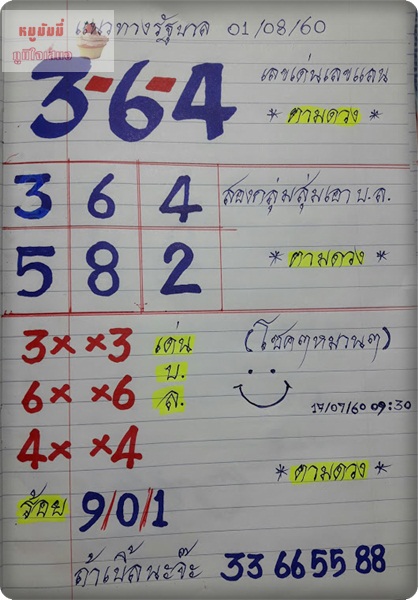 หมูบัมบี่
มูมิโคเรียล
แนวทางรัฐบาล 01/08/60
3-6-4
เลขเด่นเลขแลน
* ตามดวง *
3 6 4
สองกลุ่มสุ่มเอา บ.ล.
5 8 2
* ตามดวง *
3× ×3 เด่น (โชคๆหมานๆ)
6× ×6 บ. ล.
17/07/60 09:30
4× ×4
* ตามดวง *
ร้อย 9/0/1
ถ้าเบิ้ลนะจ๊ะ 33 66 55 88